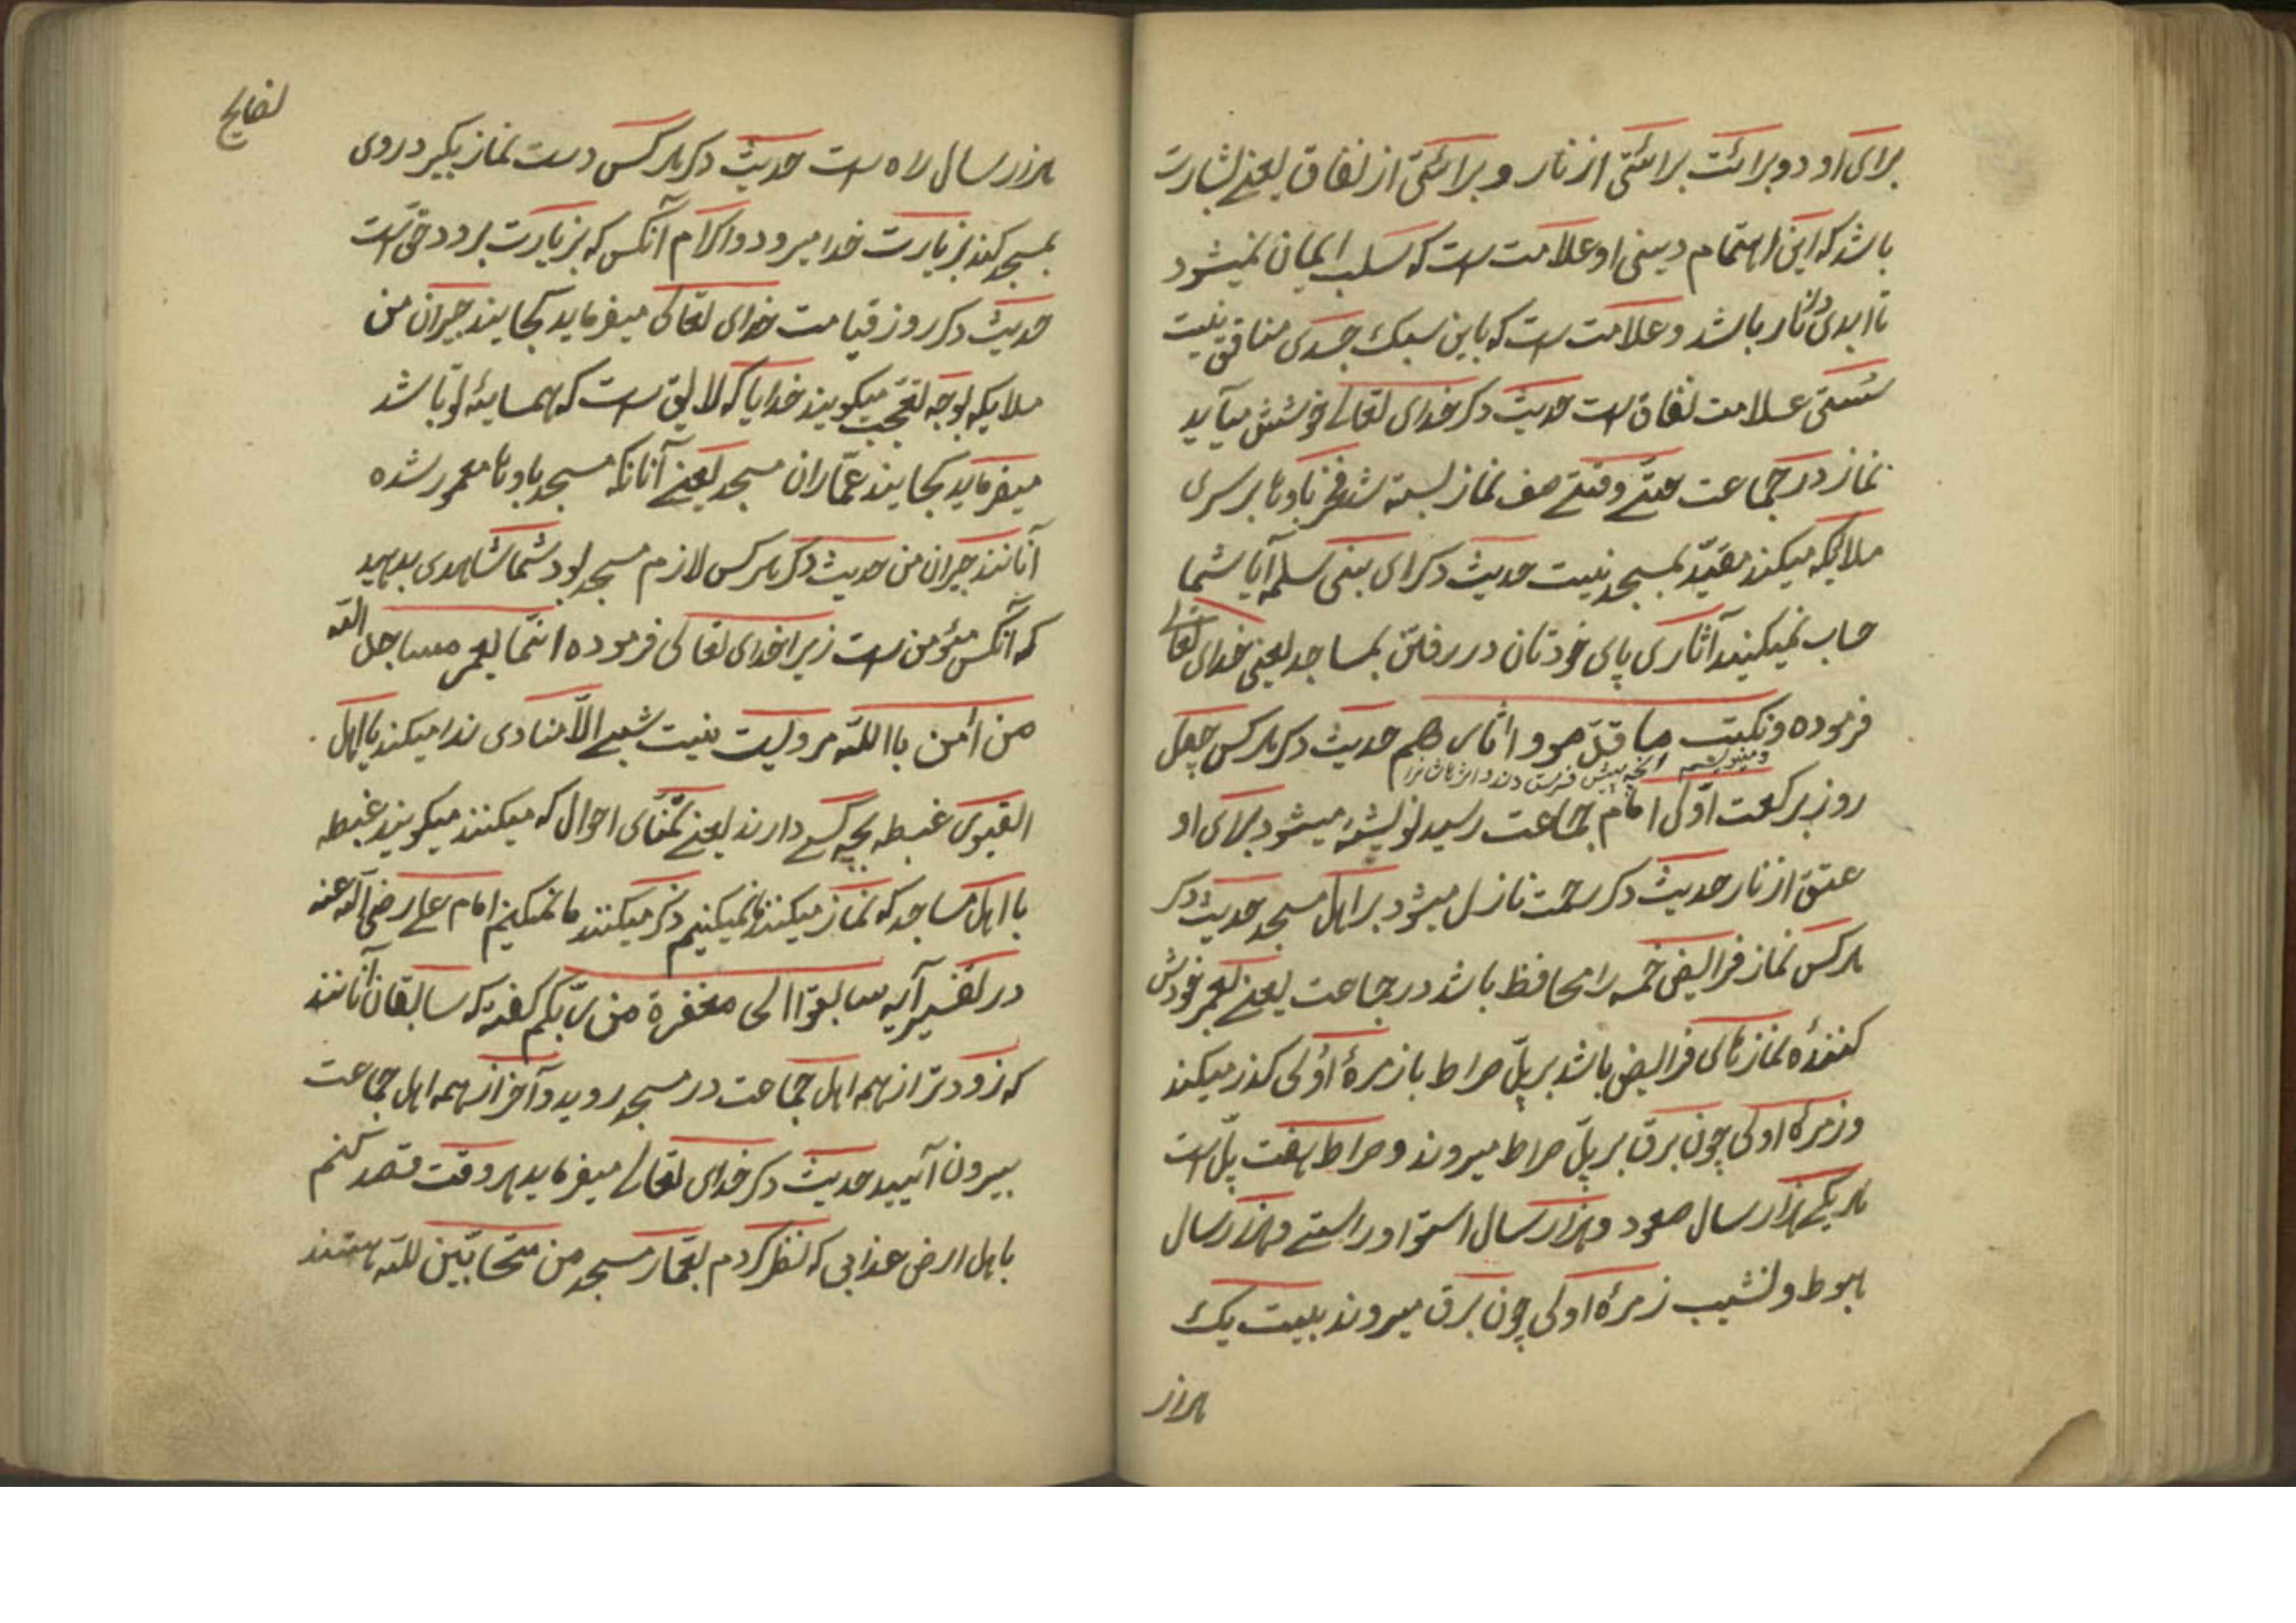 برای او دو برائت برائتی از نار و برائتی از نفاق یعنی بشارت
باشد که این اهتمام دینی او علامت است که سلب ایمان نمیشود
تا ابدی در نار باشد و علامت است که باین سبک جسدی منافق نیست
سستی علامت نفاق است حدیث دکر خدای تعالی خوشش میآید
نماز در جماعت حتی وقتی صف نماز بسته شد فخر باوها بر سری
ملایکه میکند مقید بمسجد نیست حدیث دکر ای بنی سلمه آیا شما
حساب نمیکنید آثاری پای خودتان در رفتن بمساجد یعنی خدای تعالی
فرموده ونکتب ما قدموا واثارهم حدیث دکر هرکس چهل
ومینویسیم آنچه پیش فرستادند و اثرهاشانرا
روز برکعت اولی امام جماعت رسید نوشته میشود برای او
عتق از نار حدیث دکر رحمت نازل میشود بر اهل مسجد حدیث دکر
هرکس نماز فرایض خمسه را محافظ باشد در جماعت یعنی بعمر خودش
کننده نمازهای فرایض باشد بر پل صراط با زمرهٔ اولی کذر میکند
و زمرهٔ اولی چون برق بر پل صراط میروند و صراط هفت پل است
هر یکی هزار سال صعود و هزار سال استوا و راستی و هزار سال
هبوط و نشیب زمرهٔ اولی چون برق میروند بیست یک
هزار
نصایح
هزار سال راه است حدیث دکر هرکس دست نماز بکیرد روی
بمسجد کند بزیارت خدا میرود و اکرام آنکس که بزیارت برود حق است
حدیث دکر روز قیامت خدای تعالی میفرماید کجایند جیران من
ملایکه بوجه تعجب میکویند خدایا که لایق است که همسایهٔ تو باشد
میفرماید کجایند عماران مسجد یعنی آنانکه مسجد باوها معمور شده
آنانند جیران من حدیث دکر هرکس لازم مسجد بود شما شاهدی بدهید
که آنکس مؤمن است زیرا خدای تعالی فرموده انما یعمر مساجد الله
من آمن باالله مرویست نیست شبی الا منادی ندا میکند یا اهل
القبوری غبطه بچه کسی دارند یعنی تمنای احوال که میکنند میکویند غبطه
با اهل مساجد که نماز میکنند ما نمیکنیم ذکر میکنند ما نمیکنیم امام علی رضی الله عنه
در تفسیر آیه سابقوا الی مغفرة من ربکم کفته که سابقان آنانند
که زودتر از همه اهل جماعت در مسجد روید و آخر از همه اهل جماعت
بیرون آیید حدیث دکر خدای تعالی میفرماید هر وقت قصد کنم
باهل ارض عذابی که نظر کردم بعمار مسجد من متحابین لله هستند